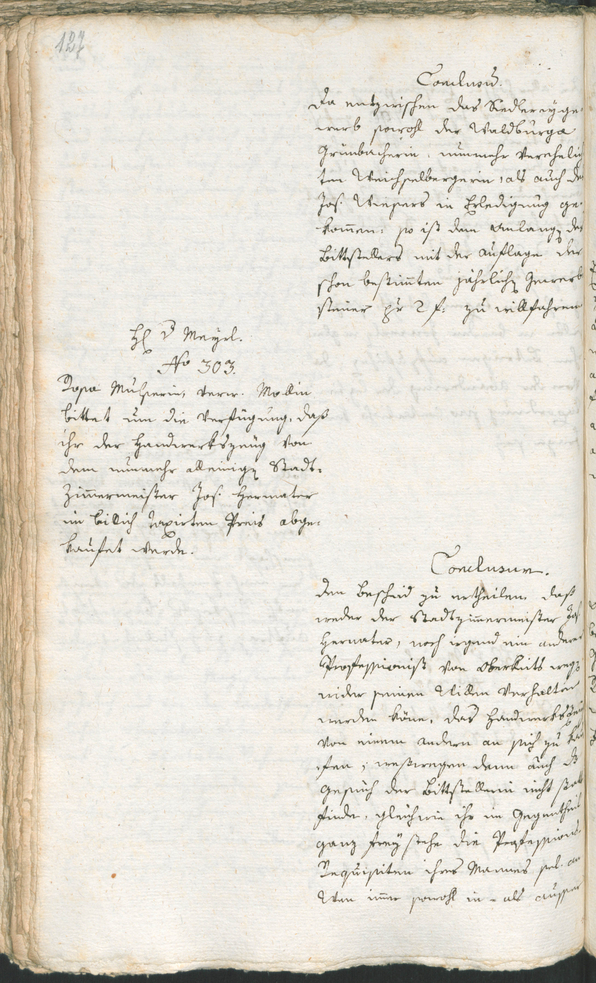 127
Conclusũ.
Da entzwischen das Sedlereyge-
werb sowohl der Waldburga
Grünbacherin, nunmehr verehelich
ten Weichselbergerin, als auch des
Jos. Wiesers in Erledigung ge-
kommen: so ist dem anlang des
Bittstellers mit der Auflage der
schon bestimmten jährlich Gewerb
steuer pr 2 f. zu willfahren
H D Mayrl.
No 303.
Rosa Muhserin, verw. Mollin
bittet um die Verfügung, daß
ihr der Handwerkszeug von
dem nunmehr alleinig Stadt-
zimmermeister Jos. Hernater
im bilich taxirten Preis abge-
kaufet werde.
Conclusum.
den Bescheid zu ertheilen, daß
weder der Stadtzimmermeister Jos
Hernater, noch irgend ein anderer
Professionist von Oberkeits wegen
wider seinen Willen verhalten
werden köne, das Handwerks
von einem andern an sich zu
fen; weßwegen dann auch das
Gesuch der Bittstellerin nicht statt
finde, gleichwie ihr im Gegentheil
ganz frey stehe die Professions
Requisiten ihres Mannes sel. an
Wen imer sowohl in- als ausser